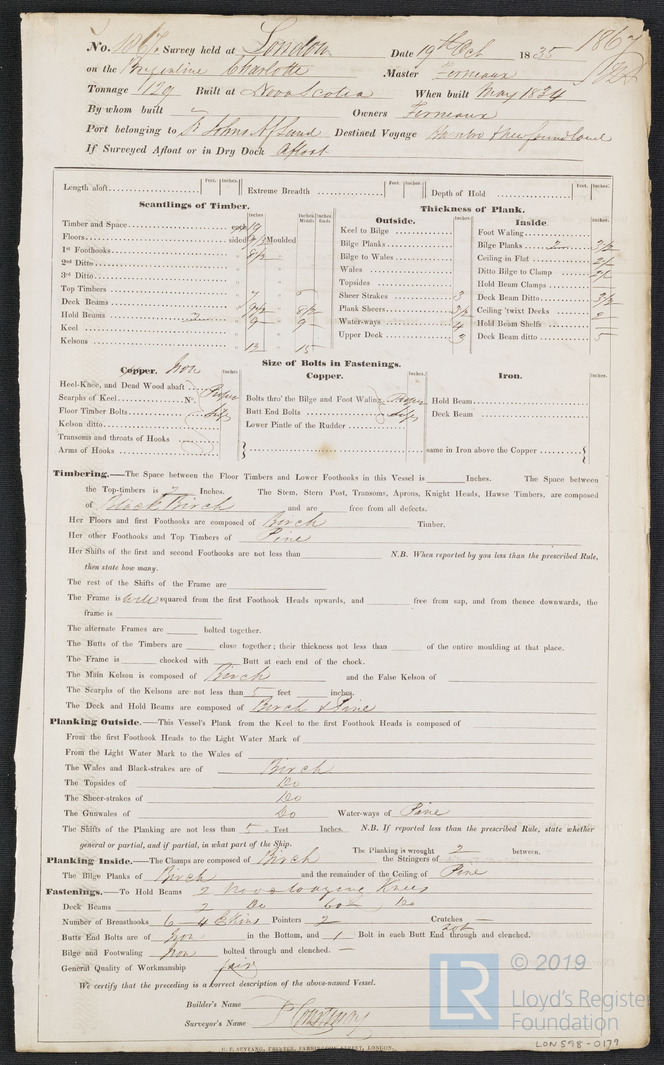 No. 1067. Survey held at London Date 19th Oct 1835 1867
on the Brigantine Charlotte Master Ferneaux
Tonnage 129 Built at Nova Scotia When built May 1834
By whom built Owners Ferneaux
Port belonging to St Johns Nfland Destined Voyage
If Surveyed Afloat or in Dry Dock Afloat
Length aloft Feet. Inches. Extreme Breadth Feet. Inches. Depth of Hold Feet. Inches.
Scantlings of Timber. Thickness of Plank.
Inches Inches Middle Inches Ends
Outside. Inches. Inside. Inches.
Timber and Space 19 Keel to Bilge Foot Waling
Floors sided Moulded Bilge Planks Bilge Planks 3½
1st Foothooks 8½ Bilge to Wales Ceiling in Flat 2½
2nd Ditto Wales Ditto Bilge to Clamp
3rd Ditto Topsides Hold Beam Clamps
Top Timbers 7 5 Sheer Strakes 3 Deck Beam Ditto 3½
Deck Beams 8½ Plank Sheers Ceiling 'twixt Decks 2
Hold Beams 9 9 Water-ways 4 Hold Beam Shelfs
Keel Upper Deck Deck Beam ditto 5
Kelsons 13 15
Size of Bolts in Fastenings.
Copper. Iron Inches Copper. Inches. Iron. Inches.
Heel-Knee, and Dead Wood abaft Proper
Scarphs of Keel No. Bolts thro' the Bilge and Foot Waling Proper Hold Beam
Floor Timber Bolts Size Butt End Bolts Size Deck Beam
Kelson ditto Lower Pintle of the Rudder
Transoms and throats of Hooks
Arms of Hooks same in Iron above the Copper
Timbering.—The Space between the Floor Timbers and Lower Foothooks in this Vessel is Inches. The Space between
the Top-timbers is 7 Inches. The Stem, Stern Post, Transoms, Aprons, Knight Heads, Hawse Timbers, are composed
of Black Birch and are free from all defects.
Her Floors and first Foothooks are composed of Birch Timber.
Her other Foothooks and Top Timbers of Pine
Her Shifts of the first and second Foothooks are not less than N.B. When reported by you less than the prescribed Rule,
then state how many.
The rest of the Shifts of the Frame are
The Frame is well squared from the first Foothook Heads upwards, and free from sap, and from thence downwards, the
frame is
The alternate Frames are bolted together.
The Butts of the Timbers are close together; their thickness not less than of the entire moulding at that place.
The Frame is chocked with Butt at each end of the chock.
The Main Kelson is composed of Birch and the False Kelson of
The Scarphs of the Kelsons are not less than 5 feet inches.
The Deck and Hold Beams are composed of Birch & Pine
Planking Outside.—This Vessel's Plank from the Keel to the first Foothook Heads is composed of
From the first Foothook Heads to the Light Water Mark of
From the Light Water Mark to the Wales of
The Wales and Black-strakes are of Birch
The Topsides of Do
The Sheer-strakes of Do
The Gunwales of Do Water-ways of Pine
The Shifts of the Planking are not less than 5 Feet Inches. N.B. If reported less than the prescribed Rule, state whether
general or partial, and if partial, in what part of the Ship. The Planking is wrought 2 between.
Planking Inside.—The Clamps are composed of Birch the Stringers of
The Bilge Planks of Birch and the remainder of the Ceiling of Pine
Fastenings.—To Hold Beams 2 Knees
Deck Beams 2 Do Do
Number of Breasthooks 6 Pointers 2 Crutches
Butts End Bolts are of Iron in the Bottom, and 1 Bolt in each Butt End through and clenched.
Bilge and Footwaling Iron bolted through and clenched.
General Quality of Workmanship fair
We certify that the preceding is a correct description of the above-named Vessel.
Builder's Name
Surveyor's Name P Courtenay
C. F. SEYFANG, PRINTER, FARRINGDON STREET, LONDON.
LR © 2019
Lloyd's Register
Foundation
LON 598-0179